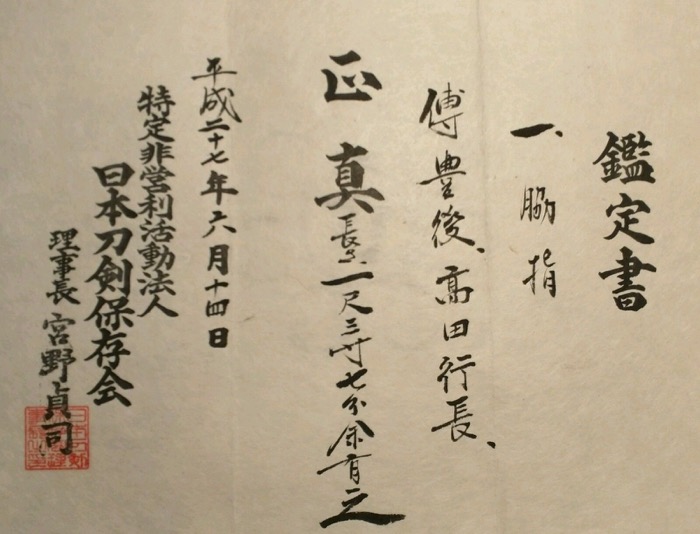 鑑定書
一、脇指
傳豊後、高田行長、
正真
長さ一尺三寸七分余有之
平成二十七年六月十四日
特定非営利活動法人
日本刀剣保存会
理事長 宮野貞司